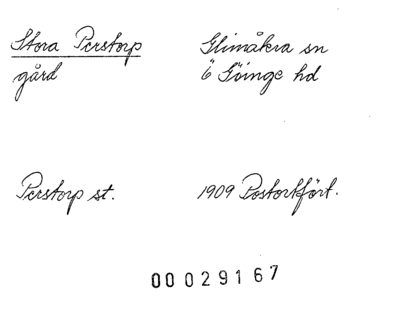 Stora Perstorp
gård
Glimåkra sn
Ö Göinge hd
Perstorp st.
1909 Postortfört.
00 029167